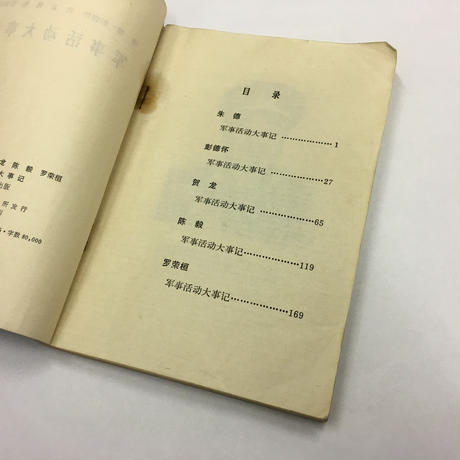 军事活动大事
龙 陈 毅 罗荣桓
大事记
出版
所发行
字数 80,000
目 录
朱 德
军事活动大事记 ……………… 1
彭德怀
军事活动大事记 ……………… 27
贺 龙
军事活动大事记 ……………… 65
陈 毅
军事活动大事记 ……………… 119
罗荣桓
军事活动大事记 ……………… 169